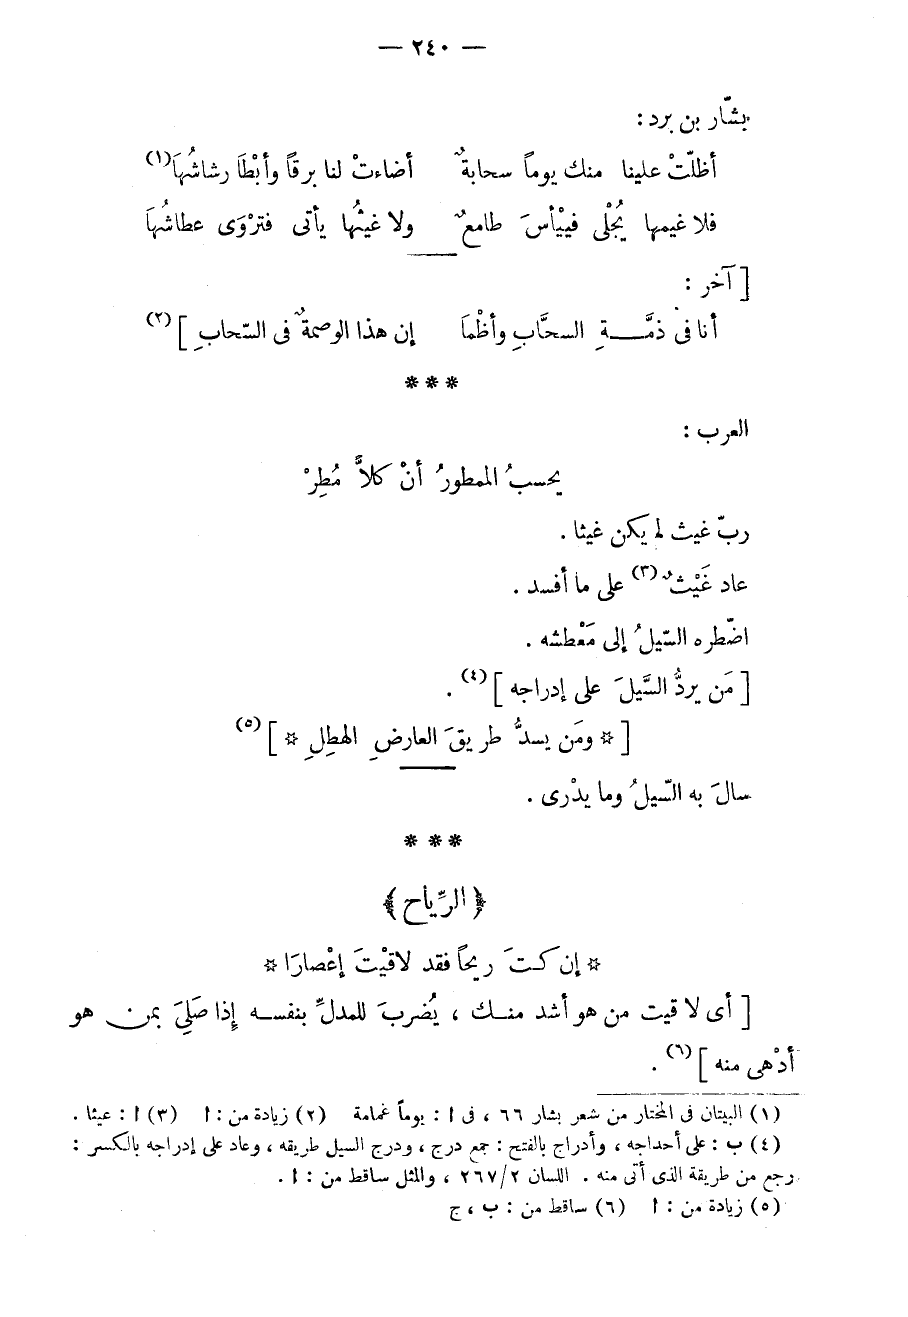 — ٢٤٠ —
بشّار بن برد :
أظلّتْ علينا منك يوماً سحابةٌ أضاءتْ لنا برقاً وأبْطَا رشاشُهَا (١)
فلا غيمها يُجْلى فييْأسَ طامعٌ ولا غيثُها يأتى فترْوَى عطاشُهَا
[ آخر :
أنا فى ذمَّــةِ السحَّابِ وأظْمَا إن هذا الوصمةٌ فى السّحابِ ] (٢)
* * *
العرب :
يحسبُ الممطورُ أنْ كلاًّ مُطِرْ
ربّ غيث لم يكن غيثا .
عاد غَيْثٌ (٣) على ما أفسد .
اضّطره السّيلُ إلى مَعْطشه .
[ مَن يردُّ السَّيلَ على إدراجه ] (٤) .
[ * ومَن يسدُّ طريقَ العارضِ الهطِلِ * ] (٥)
سالَ به السّيلُ وما يدْرى .
* * *
﴿ الرِّياح ﴾
* إن كنتَ ريحاً فقد لاقيْتَ إعْصارَا *
[ أى لاقيت من هو أشد منــك ، يُضربَ للمدلِّ بنفســه إِذا صَلِىَ بمن هو
أدْهى منه ] (٦) .
(١) البيتان فى المختار من شعر بشار ٦٦ ، فى ا : يوماً غمامة (٢) زيادة من : ا (٣) ا : عيثا .
(٤) ب : على أحداجه ، وأدراج بالفتح : جمع درج ، ودرج السيل طريقه ، وعاد على إدراجه بالكسر :
رجع من طريقة الذى أتى منه . اللسان ٢/٢٦٧ ، والمثل ساقط من : ا .
(٥) زيادة من : ا (٦) ساقط من : ب ، ج